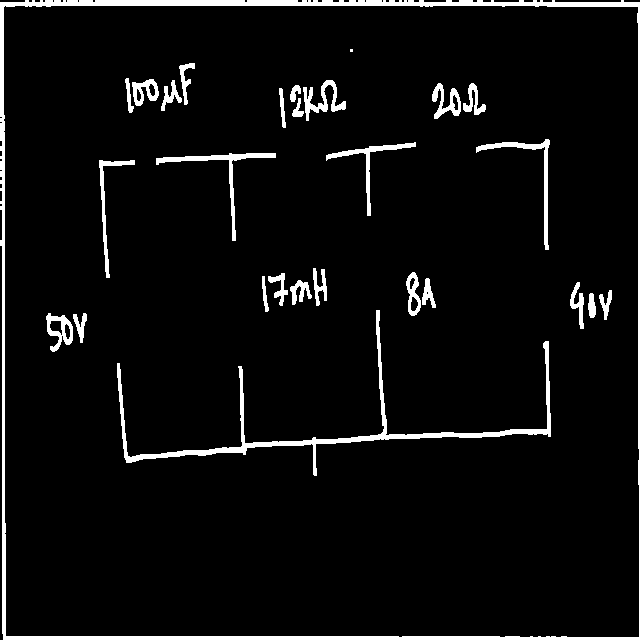 100μF 12KΩ 20Ω
50V 17mH 8A